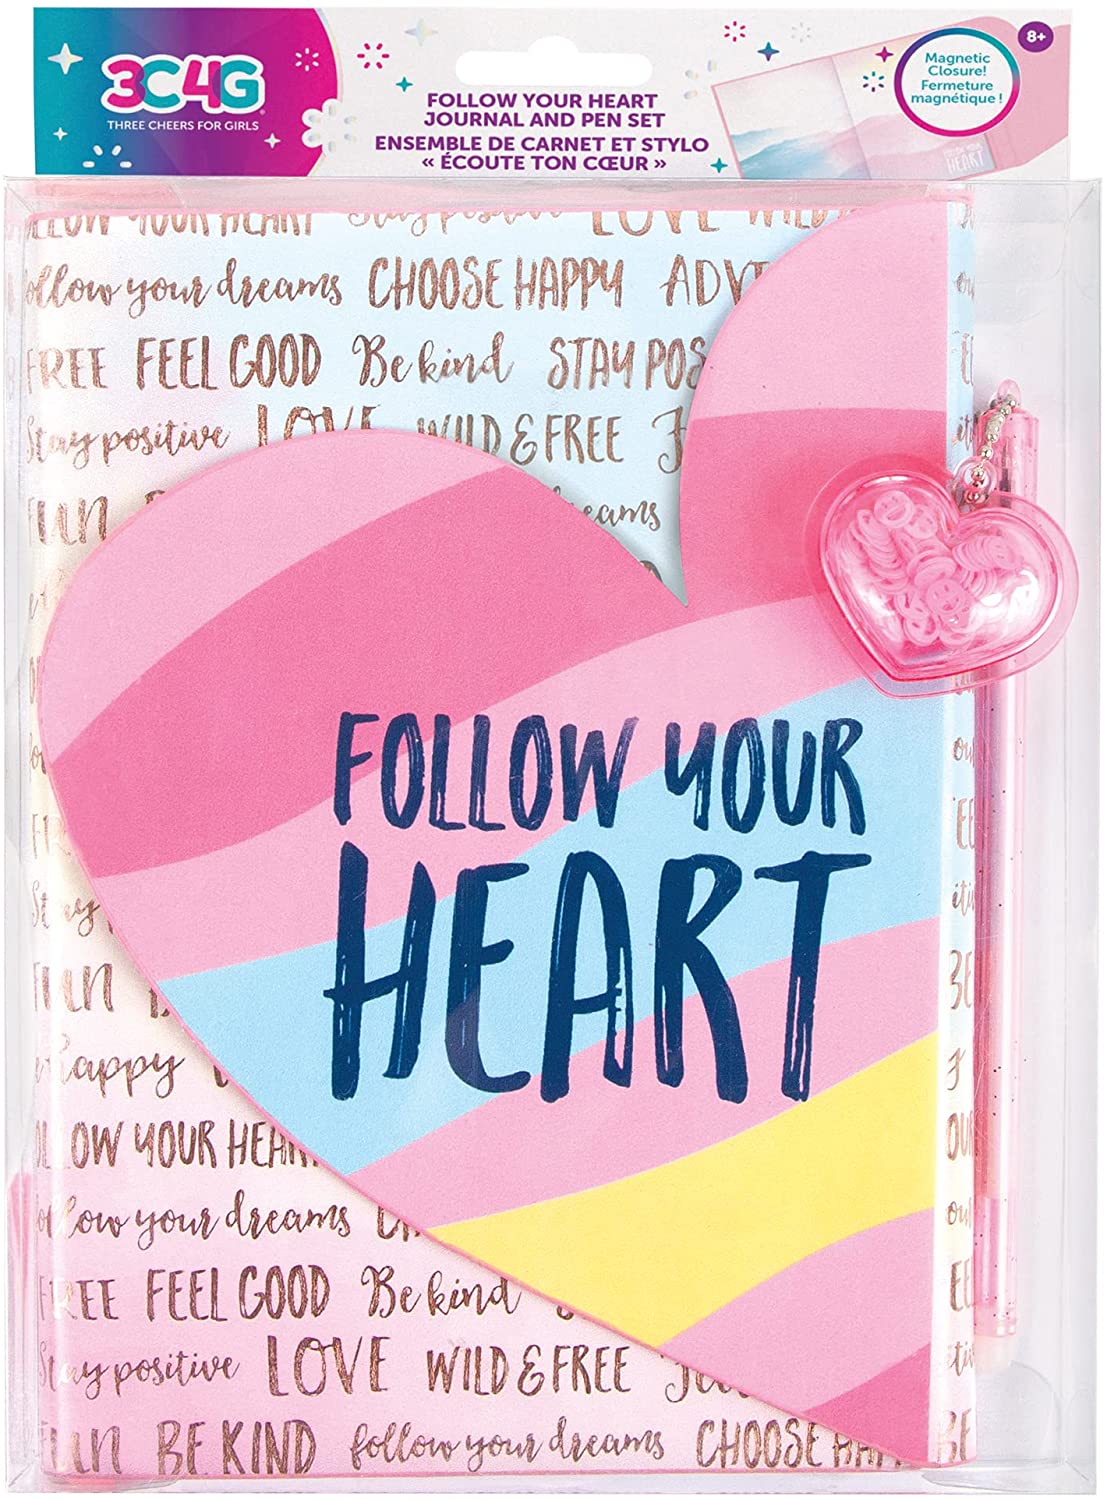 3C4G
THREE CHEERS FOR GIRLS
FOLLOW YOUR HEART
JOURNAL AND PEN SET
ENSEMBLE DE CARNET ET STYLO
« ÉCOUTE TON CŒUR »
Magnetic
Closure!
Fermeture
magnétique !
8+
FOLLOW YOUR
HEART
FOLLOW YOUR HEART Stay positive LOVE WILD
follow your dreams CHOOSE HAPPY ADV
FREE FEEL GOOD Be kind STAY POS
Stay positive LOVE WILD & FREE
FUN
eams
FOLLOW YOUR
HEART
FUN
happy
LLOW YOUR HEAR
follow your dreams
FREE FEEL GOOD Be kind
Stay positive LOVE WILD & FREE
FUN BE KIND follow your dreams CHOOSE HAP BE